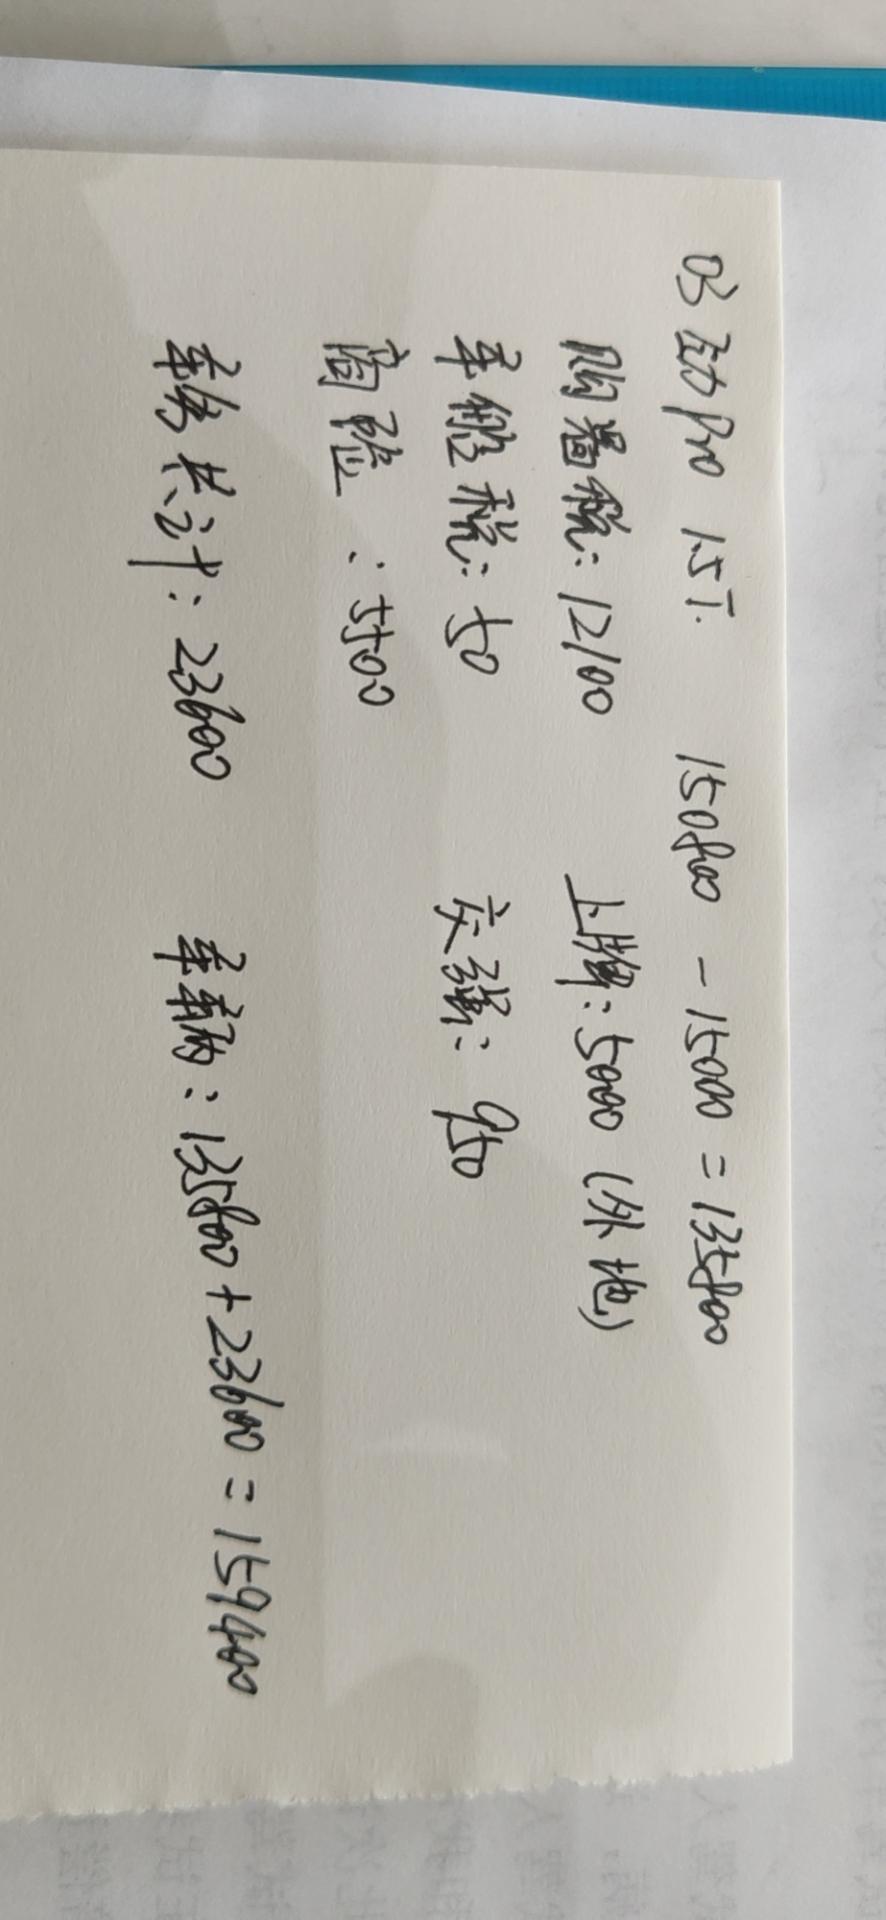 03 劲动 pro 1.5T. 150800 - 15000 = 135800
购置税: 12100 上牌: 5000 (外地)
车船税: 50 交强: 950
商险: 5500
车务共计: 23600 车辆: 135800 + 23600 = 159400